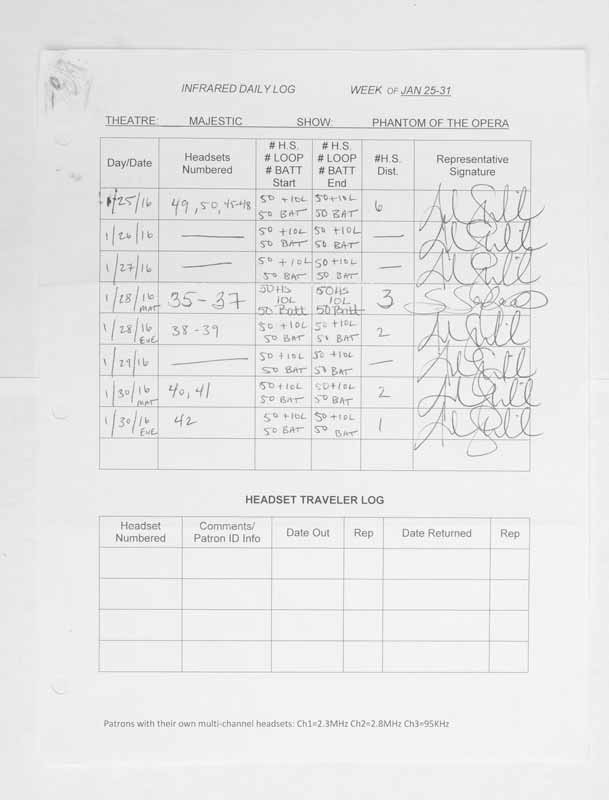 INFRARED DAILY LOG WEEK OF JAN 25-31
THEATRE: MAJESTIC SHOW: PHANTOM OF THE OPERA
Day/Date Headsets Numbered # H.S. # LOOP # BATT Start # H.S. # LOOP # BATT End #H.S. Dist. Representative Signature
1/25/16 49, 50, 45-48 50 +10L 50 BAT 50+10L 50 BAT 6
1/26/16 — 50 +10L 50 BAT 50 +10L 50 BAT —
1/27/16 — 50 +10L 50 BAT 50+10L 50 BAT —
1/28/16 MAT 35-37 50HS 10L 50 Batt 50HS 10L 50 Batt 3
1/28/16 EVE 38-39 50+10L 50 BAT 50+10L 50 BAT 2
1/29/16 — 50+10L 50 BAT 50+10L 50 BAT —
1/30/16 MAT 40, 41 50+10L 50 BAT 50+10L 50 BAT 2
1/30/16 EVE 42 50+10L 50 BAT 50+10L 50 BAT 1
HEADSET TRAVELER LOG
Headset Numbered Comments/ Patron ID Info Date Out Rep Date Returned Rep
Patrons with their own multi-channel headsets: Ch1=2.3MHz Ch2=2.8MHz Ch3=95KHz